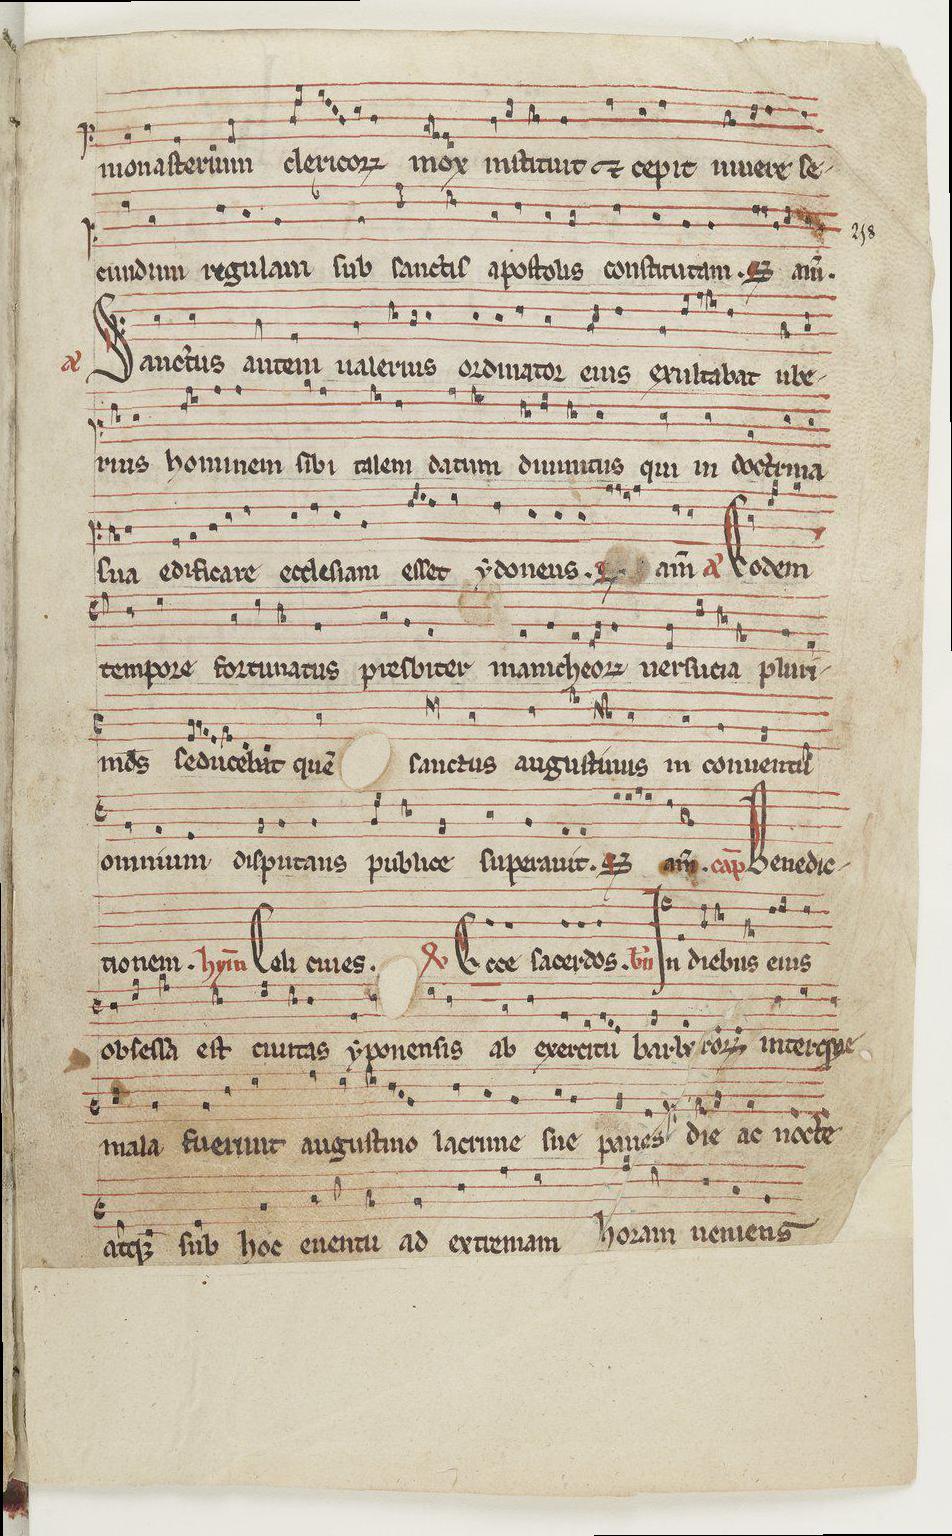 monasterium clericoꝝ mox instituit et cepit uiuere se-
258
cundum regulam sub sanctis apostolis constitutam. Ps am̄.
a͛ Sanctus autem ualerius ordinator eius exultabat ube-
rius hominem sibi talem datum diuinitus qui in doctrina
sua edificare ecclesiam esset ẏdoneus. am̄ a͛ Eodem
tempore fortunatus presbiter manicheoꝝ uersucia pluri-
mos seducebat quē sanctus augustinus in conuentu
omnium disputans publice superauit. Ps am̄. cap̄ Benedic-
tionem. hym̄ Celi ciues. ℟ Ecce sacerdos. bn̄ In diebus eius
obsessa est ciuitas ẏponensis ab exercitu barbaroꝝ interque
mala fuerunt augustino lacrime sue panes die ac nocte
atqꝫ sub hoc euentu ad extremam horam ueniens